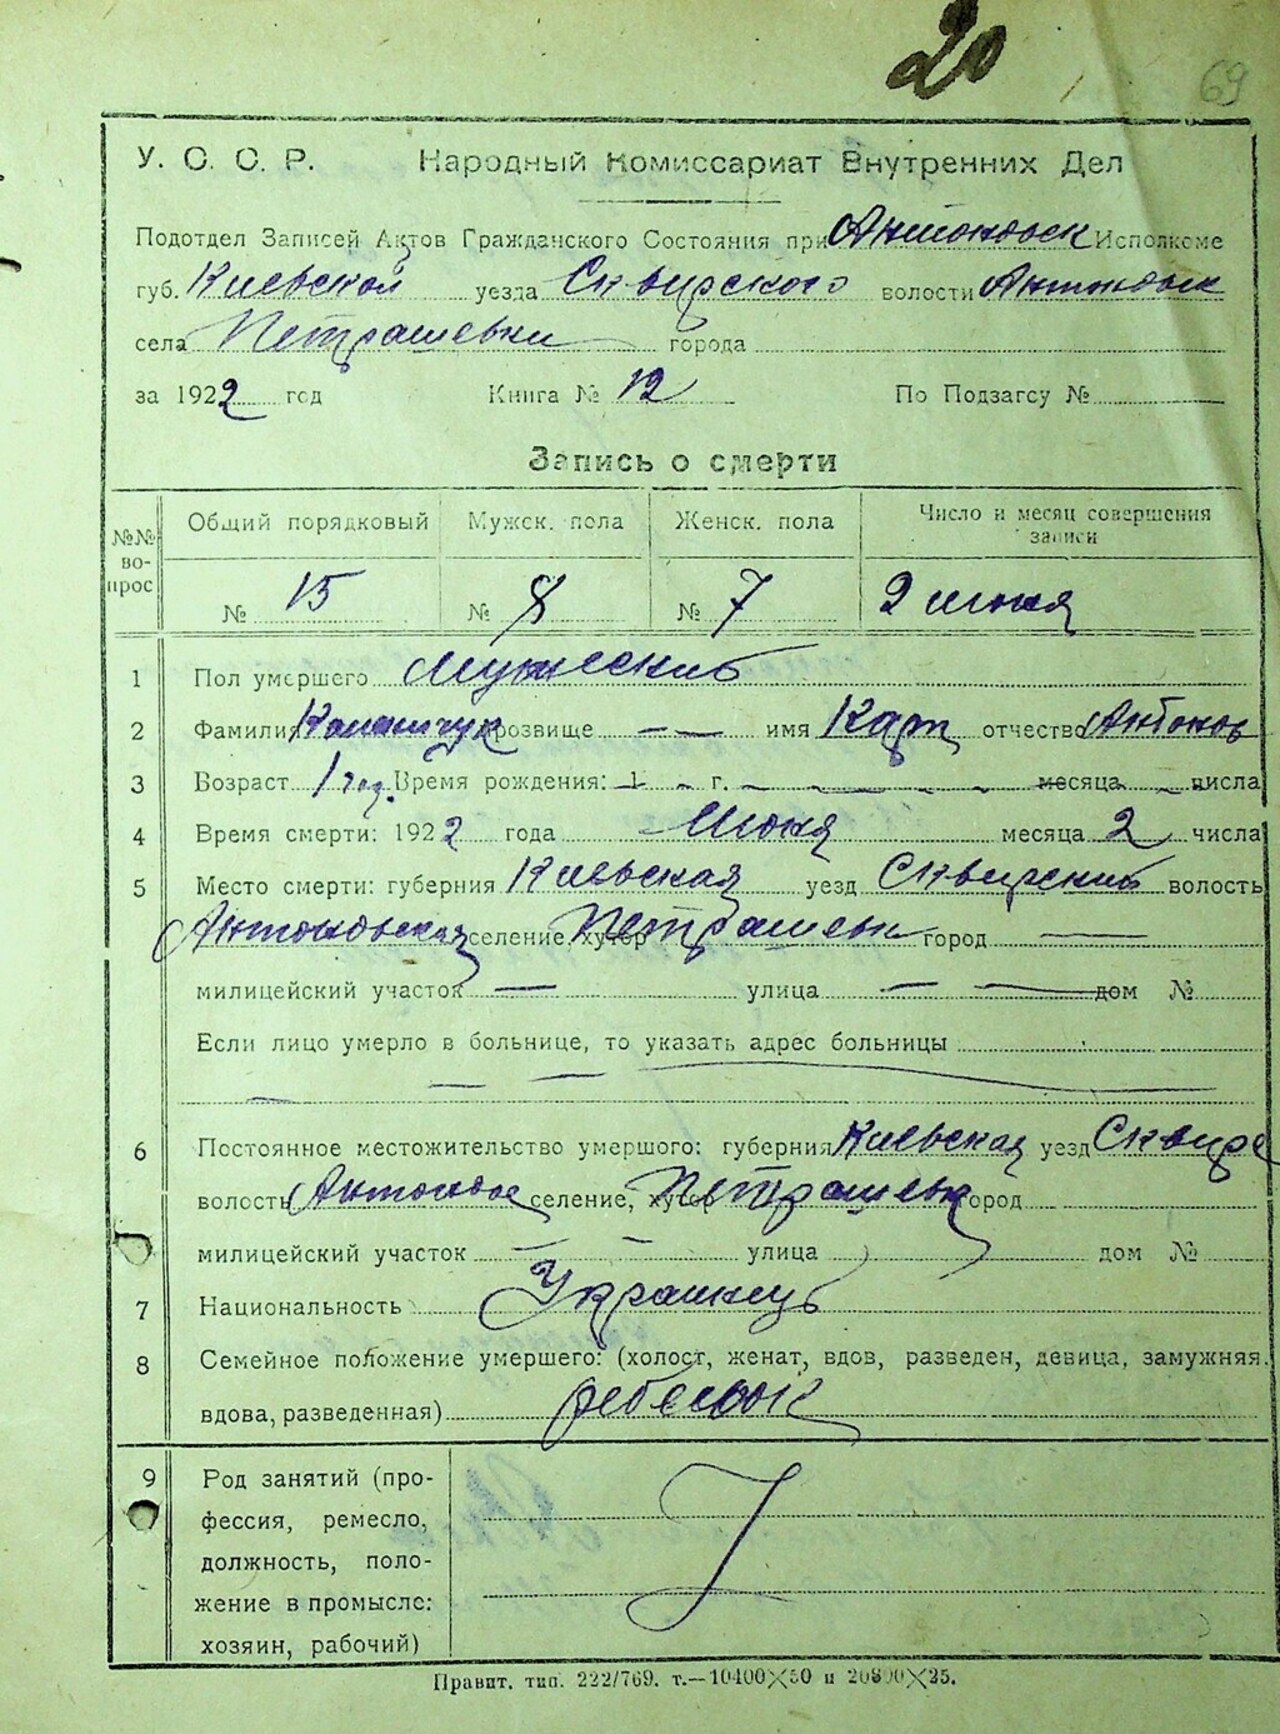 20
69
У. С. С. Р. Народный Комиссариат Внутренних Дел
Подотдел Записей Актов Гражданского Состояния при Антоновск Исполкоме
губ. Киевской уезда Сквирского волости Антоновск
села Петрашевки города
за 1922 год Книга № 12 По Подзагсу №
Запись о смерти
№№ вопрос Общий порядковый Мужск. пола Женск. пола Число и месяц совершения записи
№ 15 № 8 № 7 2 июня
1 Пол умершего Мужеский
2 Фамилия прозвище — — имя Карп отчество Антонов
3 Возраст 1 год. Время рождения: 1 г. месяца числа
4 Время смерти: 1922 года Июня месяца 2 числа
5 Место смерти: губерния Киевская уезд Сквирский волость
Антоновская селение, хутор Петрашевк город —
милицейский участок — улица — — дом №
Если лицо умерло в больнице, то указать адрес больницы
6 Постоянное местожительство умершого: губерния Киевская уезд Сквирс
волость Антоновс селение, хутор Петрашевк город
милицейский участок — — улица дом №
7 Национальность Украинец
8 Семейное положение умершего: (холост, женат, вдов, разведен, девица, замужняя.
вдова, разведенная) ребенок
9 Род занятий (про-
фессия, ремесло,
должность, поло-
жение в промысле:
хозяин, рабочий)
Правит. тип. 222/769. т.—10400×50 и 20800×25.